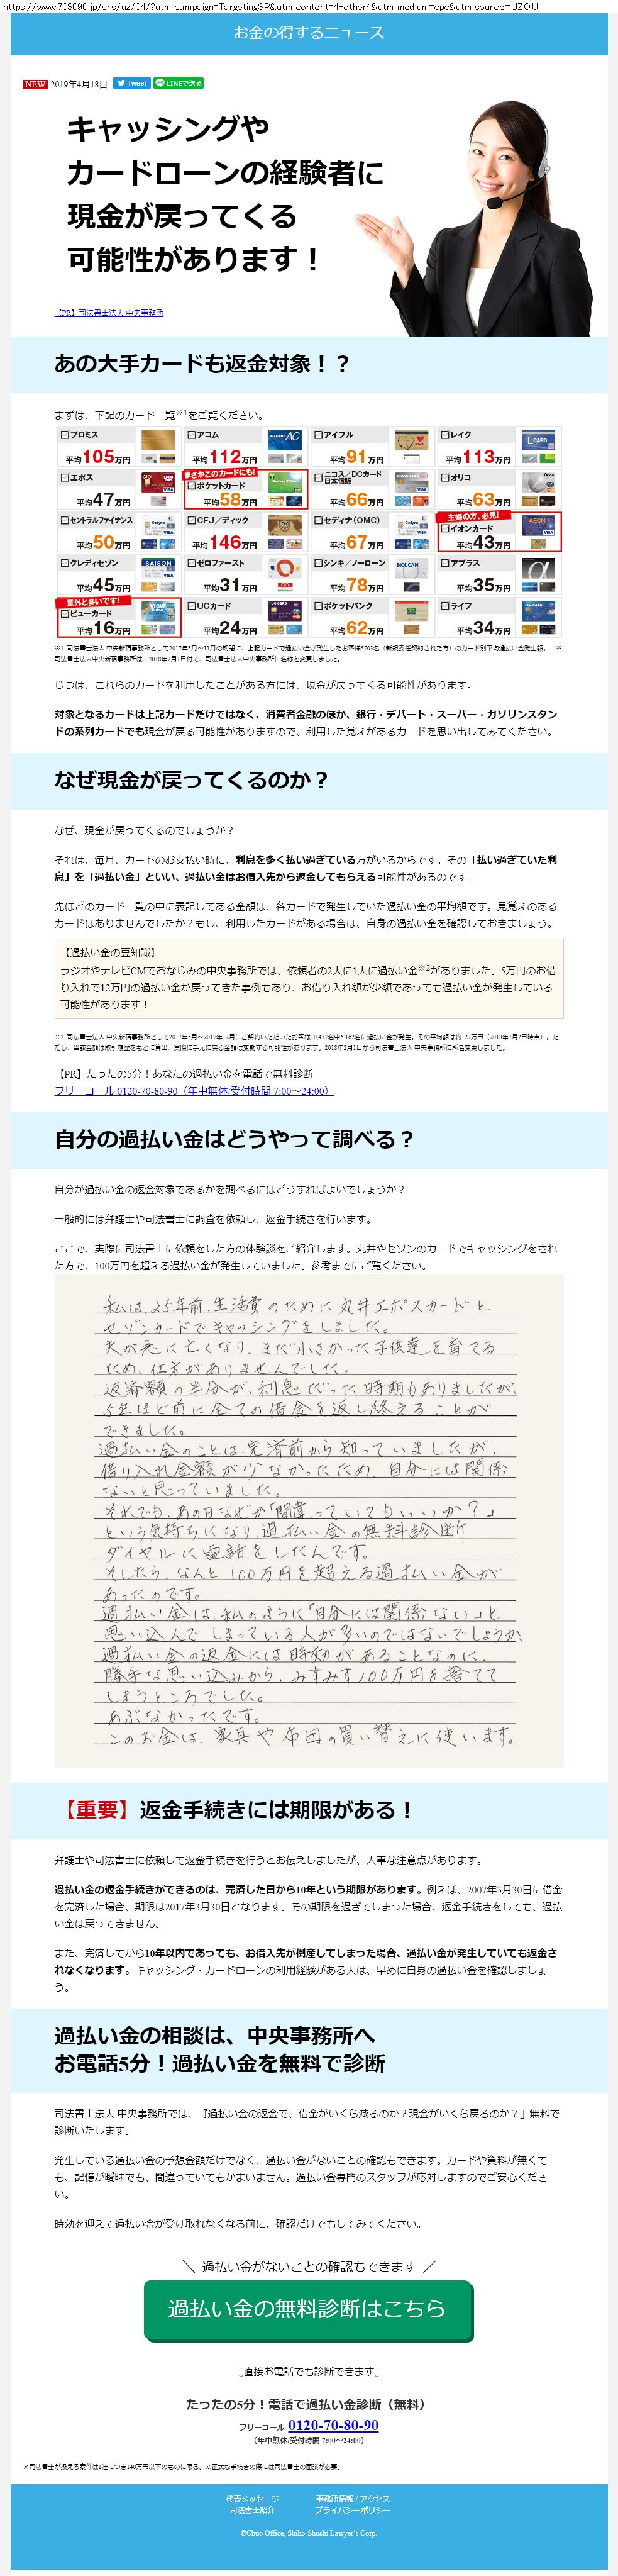 https://www.708090.jp/sns/uz/04/?utm_campaign=TargetingSP&utm_content=4-other4&utm_medium=cpc&utm_source=UZOU
お金の得するニュース
NEW 2019年4月18日 Tweet LINEで送る
キャッシングや
カードローンの経験者に
現金が戻ってくる
可能性があります！
【PR】司法書士法人 中央事務所
あの大手カードも返金対象！？
まずは、下記のカード一覧※1をご覧ください。
プロミス 平均105万円
アコム 平均112万円
アイフル 平均91万円
レイク 平均113万円
エポス 平均47万円
まさかこのカードにも!
ポケットカード 平均58万円
ニコス／DCカード 日本信販 平均66万円
オリコ 平均63万円
セントラルファイナンス 平均50万円
CFJ／ディック 平均146万円
セディナ(OMC) 平均67万円
主婦の方、必見!
イオンカード 平均43万円
クレディセゾン 平均45万円
ゼロファースト 平均31万円
シンキ／ノーローン 平均78万円
アプラス 平均35万円
意外と多いです!
ビューカード 平均16万円
UCカード 平均24万円
ポケットバンク 平均62万円
ライフ 平均34万円
※1. 司法■士法人 中央新宿事務所として2017年5月〜11月の期間に、上記カードで過払い金が発生したお客様5703名（新規委任契約された方）のカード別平均過払い金発生額。 ※
司法■士法人中央新宿事務所は、2018年2月1日付で、司法■士法人中央事務所に名称を変更しました。
じつは、これらのカードを利用したことがある方には、現金が戻ってくる可能性があります。
対象となるカードは上記カードだけではなく、消費者金融のほか、銀行・デパート・スーパー・ガソリンスタン
ドの系列カードでも現金が戻る可能性がありますので、利用した覚えがあるカードを思い出してみてください。
なぜ現金が戻ってくるのか？
なぜ、現金が戻ってくるのでしょうか？
それは、毎月、カードのお支払い時に、利息を多く払い過ぎている方がいるからです。その「払い過ぎていた利
息」を「過払い金」といい、過払い金はお借入先から返金してもらえる可能性があるのです。
先ほどのカード一覧の中に表記してある金額は、各カードで発生していた過払い金の平均額です。見覚えのある
カードはありませんでしたか？もし、利用したカードがある場合は、自身の過払い金を確認しておきましょう。
【過払い金の豆知識】
ラジオやテレビCMでおなじみの中央事務所では、依頼者の2人に1人に過払い金※2がありました。5万円のお借
り入れで12万円の過払い金が戻ってきた事例もあり、お借り入れ額が少額であっても過払い金が発生している
可能性があります！
※2. 司法■士法人 中央新宿事務所として2017年5月〜2017年12月にご契約いただいたお客様10,417名中6,162名に過払い金が発生。その平均額は約127万円（2018年7月2日時点）。た
だし、当該金額は取引履歴をもとに算出、実際に手元に戻る金額は変動する可能性があります。2018年2月1日から司法■士法人 中央事務所に所名変更しました。
【PR】たったの5分！あなたの過払い金を電話で無料診断
フリーコール 0120-70-80-90（年中無休/受付時間 7:00〜24:00）
自分の過払い金はどうやって調べる？
自分が過払い金の返金対象であるかを調べるにはどうすればよいでしょうか？
一般的には弁護士や司法書士に調査を依頼し、返金手続きを行います。
ここで、実際に司法書士に依頼をした方の体験談をご紹介します。丸井やセゾンのカードでキャッシングをされ
た方で、100万円を超える過払い金が発生していました。参考までにご覧ください。
私は、25年前、生活費のために丸井エポスカードと
セゾンカードでキャッシングをしました。
夫が急に亡くなり、まだ小さかった子供達を育てる
ため、仕方がありませんでした。
返済額の半分が、利息だった時期もありましたが、
5年ほど前に全ての借金を返し終えることが
できました。
過払い金のことは、完済前から知っていましたが、
借り入れ金額が少なかったため、自分には関係
ないと思っていました。
それでも、あの日なぜか「間違っていてもいいか？」
という気持ちになり、過払い金の無料診断
ダイヤルに電話をしたんです。
そしたら、なんと100万円を超える過払い金が
あったのです。
過払い金は、私のように「自分には関係ない」と
思い込んでしまっている人が多いのではないでしょうか。
過払い金の返金には時効があることなのに、
勝手な思い込みから、みすみす100万円を捨てて
しまうところでした。
あぶなかったです。
このお金は、家具や布団の買い替えに使います。
【重要】返金手続きには期限がある！
弁護士や司法書士に依頼して返金手続きを行うとお伝えしましたが、大事な注意点があります。
過払い金の返金手続きができるのは、完済した日から10年という期限があります。例えば、2007年3月30日に借金
を完済した場合、期限は2017年3月30日となります。その期限を過ぎてしまった場合、返金手続きをしても、過払
い金は戻ってきません。
また、完済してから10年以内であっても、お借入先が倒産してしまった場合、過払い金が発生していても返金さ
れなくなります。キャッシング・カードローンの利用経験がある人は、早めに自身の過払い金を確認しましょ
う。
過払い金の相談は、中央事務所へ
お電話5分！過払い金を無料で診断
司法書士法人 中央事務所では、『過払い金の返金で、借金がいくら減るのか？現金がいくら戻るのか？』無料で
診断いたします。
発生している過払い金の予想金額だけでなく、過払い金がないことの確認もできます。カードや資料が無くて
も、記憶が曖昧でも、間違っていてもかまいません。過払い金専門のスタッフが応対しますのでご安心くださ
い。
時効を迎えて過払い金が受け取れなくなる前に、確認だけでもしてみてください。
＼ 過払い金がないことの確認もできます ／
過払い金の無料診断はこちら
↓直接お電話でも診断できます↓
たったの5分！電話で過払い金診断（無料）
フリーコール 0120-70-80-90
（年中無休/受付時間 7:00〜24:00）
※司法■士が扱える案件は1社につき140万円以下のものに限る。※正式な手続きの際には司法■士の面談が必要。
代表メッセージ 事務所情報 / アクセス
司法書士紹介 プライバシーポリシー
©Chuo Office, Shiho-Shoshi Lawyer's Corp.